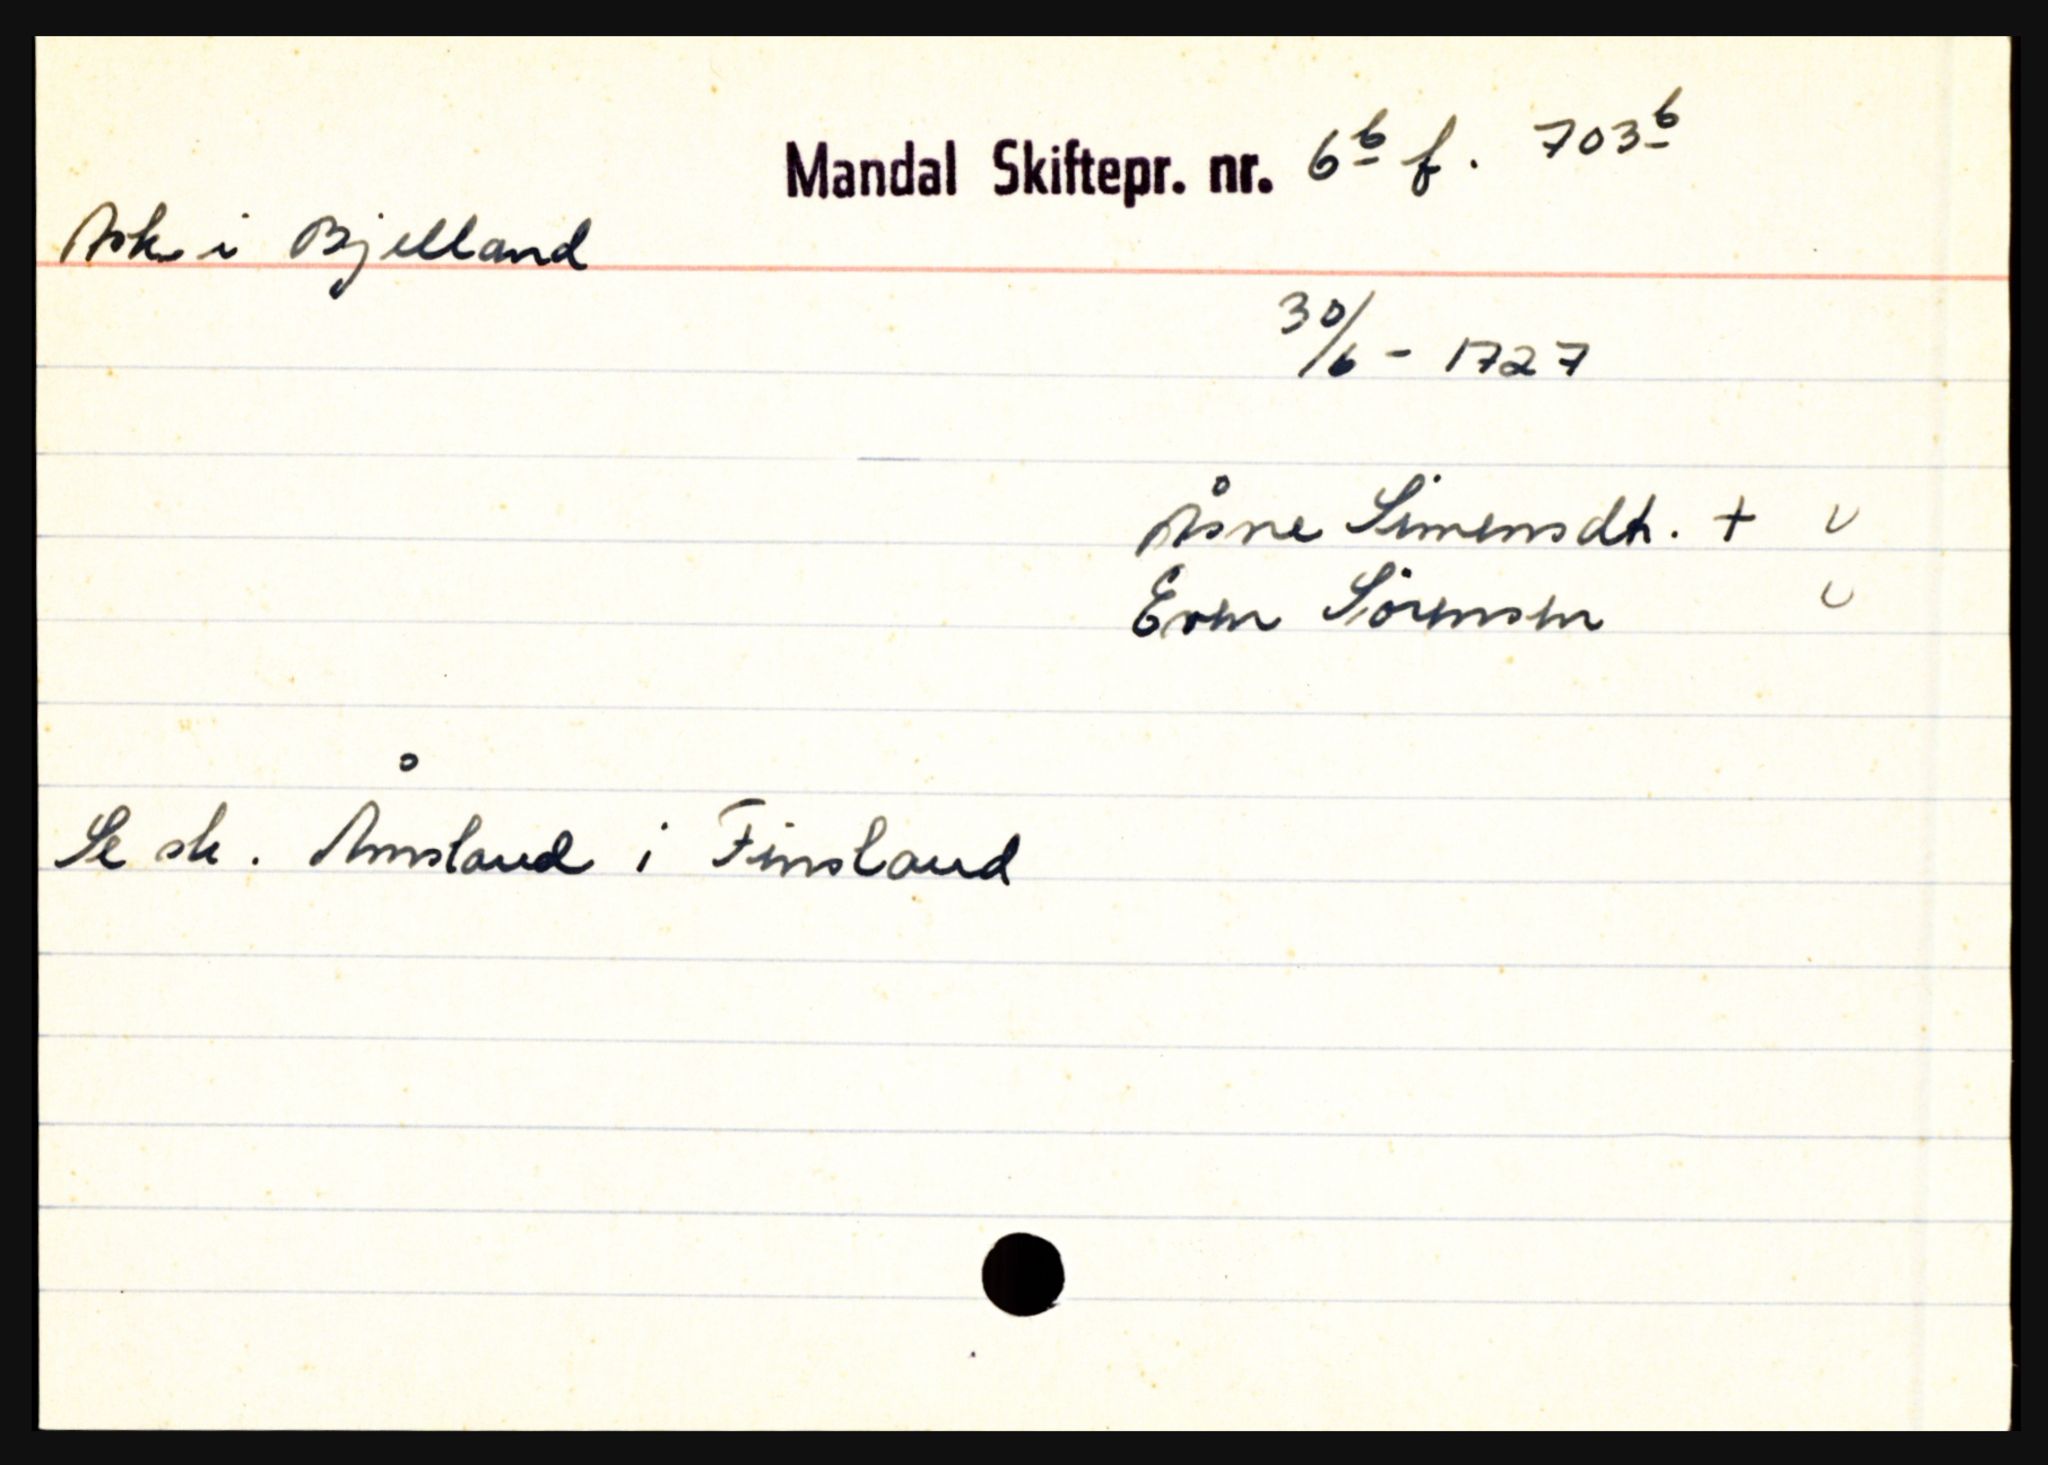 Mandal Skiftepr. nr. 6b f. 703b
Ask i Bjelland
30/6 - 1727
Åsne Simensdtr. +
Even Sörensen
Se sk. Åmsland i Finsland